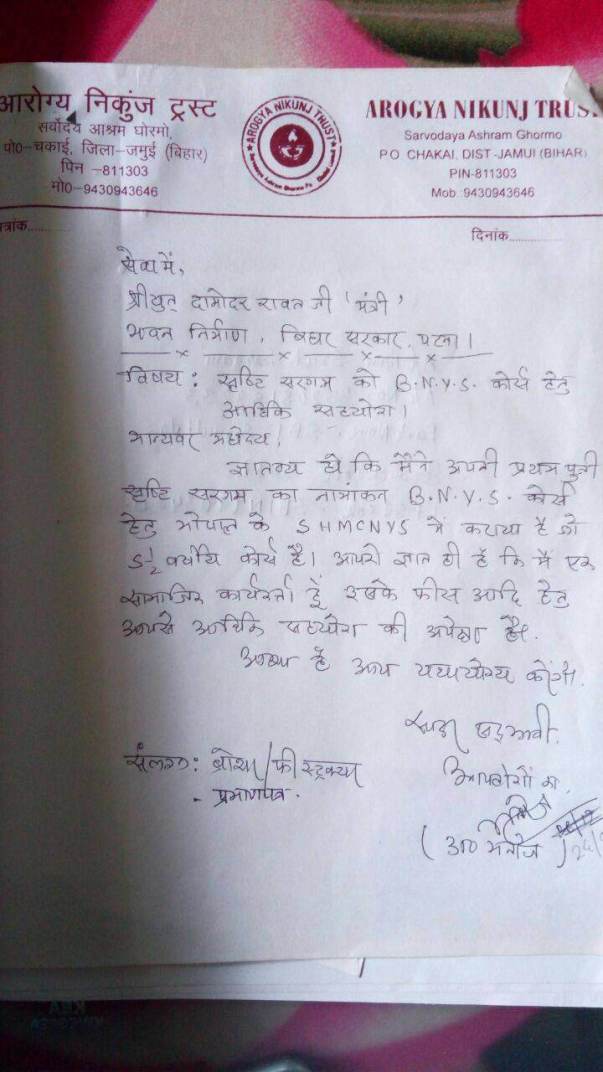 आरोग्य निकुंज ट्रस्ट
सर्वोदय आश्रम घोरमो,
पो0-चकाई, जिला-जमुई (बिहार)
पिन -811303
मो0-9430943646
AROGYA NIKUNJ TRUST
AROGYA NIKUNJ TRUS
Sarvodaya Ashram Ghormo
P.O. CHAKAI, DIST-JAMUI (BIHAR)
PIN-811303
Mob. 9430943646
त्रांक..........
दिनांक..............
सेवा में,
श्रीयुत् दामोदर रावत जी 'मंत्री'
भवन निर्माण, बिहार सरकार, पटना।
विषय: सृष्टि सरगम को B.N.Y.S. कोर्स हेतु
आर्थिक सहयोग।
मान्यवर महोदय,
ज्ञातव्य हो कि मैंने अपनी प्रथम पुत्री
सृष्टि सरगम का नामांकन B.N.Y.S. कोर्स
हेतु भोपाल के SHMCNYS में कराया है जो
5½ वर्षीय कोर्स है। आपको ज्ञात ही है कि मैं एक
सामाजिक कार्यकर्ता हूँ इसके फीस आदि हेतु
आपसे आर्थिक सहयोग की अपेक्षा है।
आशा है आप यथायोग्य करेंगे.
सदा सद्भावी.
संलग्न: ब्रोसर/फी स्ट्रक्चर
- प्रमाणपत्र.
आपलोगों का.
(डा0 मनोज)